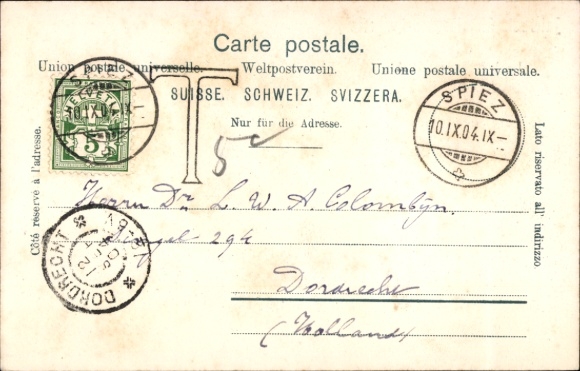 Carte postale.
Union postale universelle. Weltpostverein. Unione postale universale.
SUISSE. SCHWEIZ. SVIZZERA.
Nur für die Adresse.
Côté réservé à l'adresse.
Lato riservato all' indirizzo
T
5c
HELVETIA
5
SPIEZ
10.IX.04.IX-
SPIEZ
10.IX.04.IX-
DORDRECHT
Herrn Dr. L. W. A. Colombijn,
Singel 294
Dordrecht
(Holland)